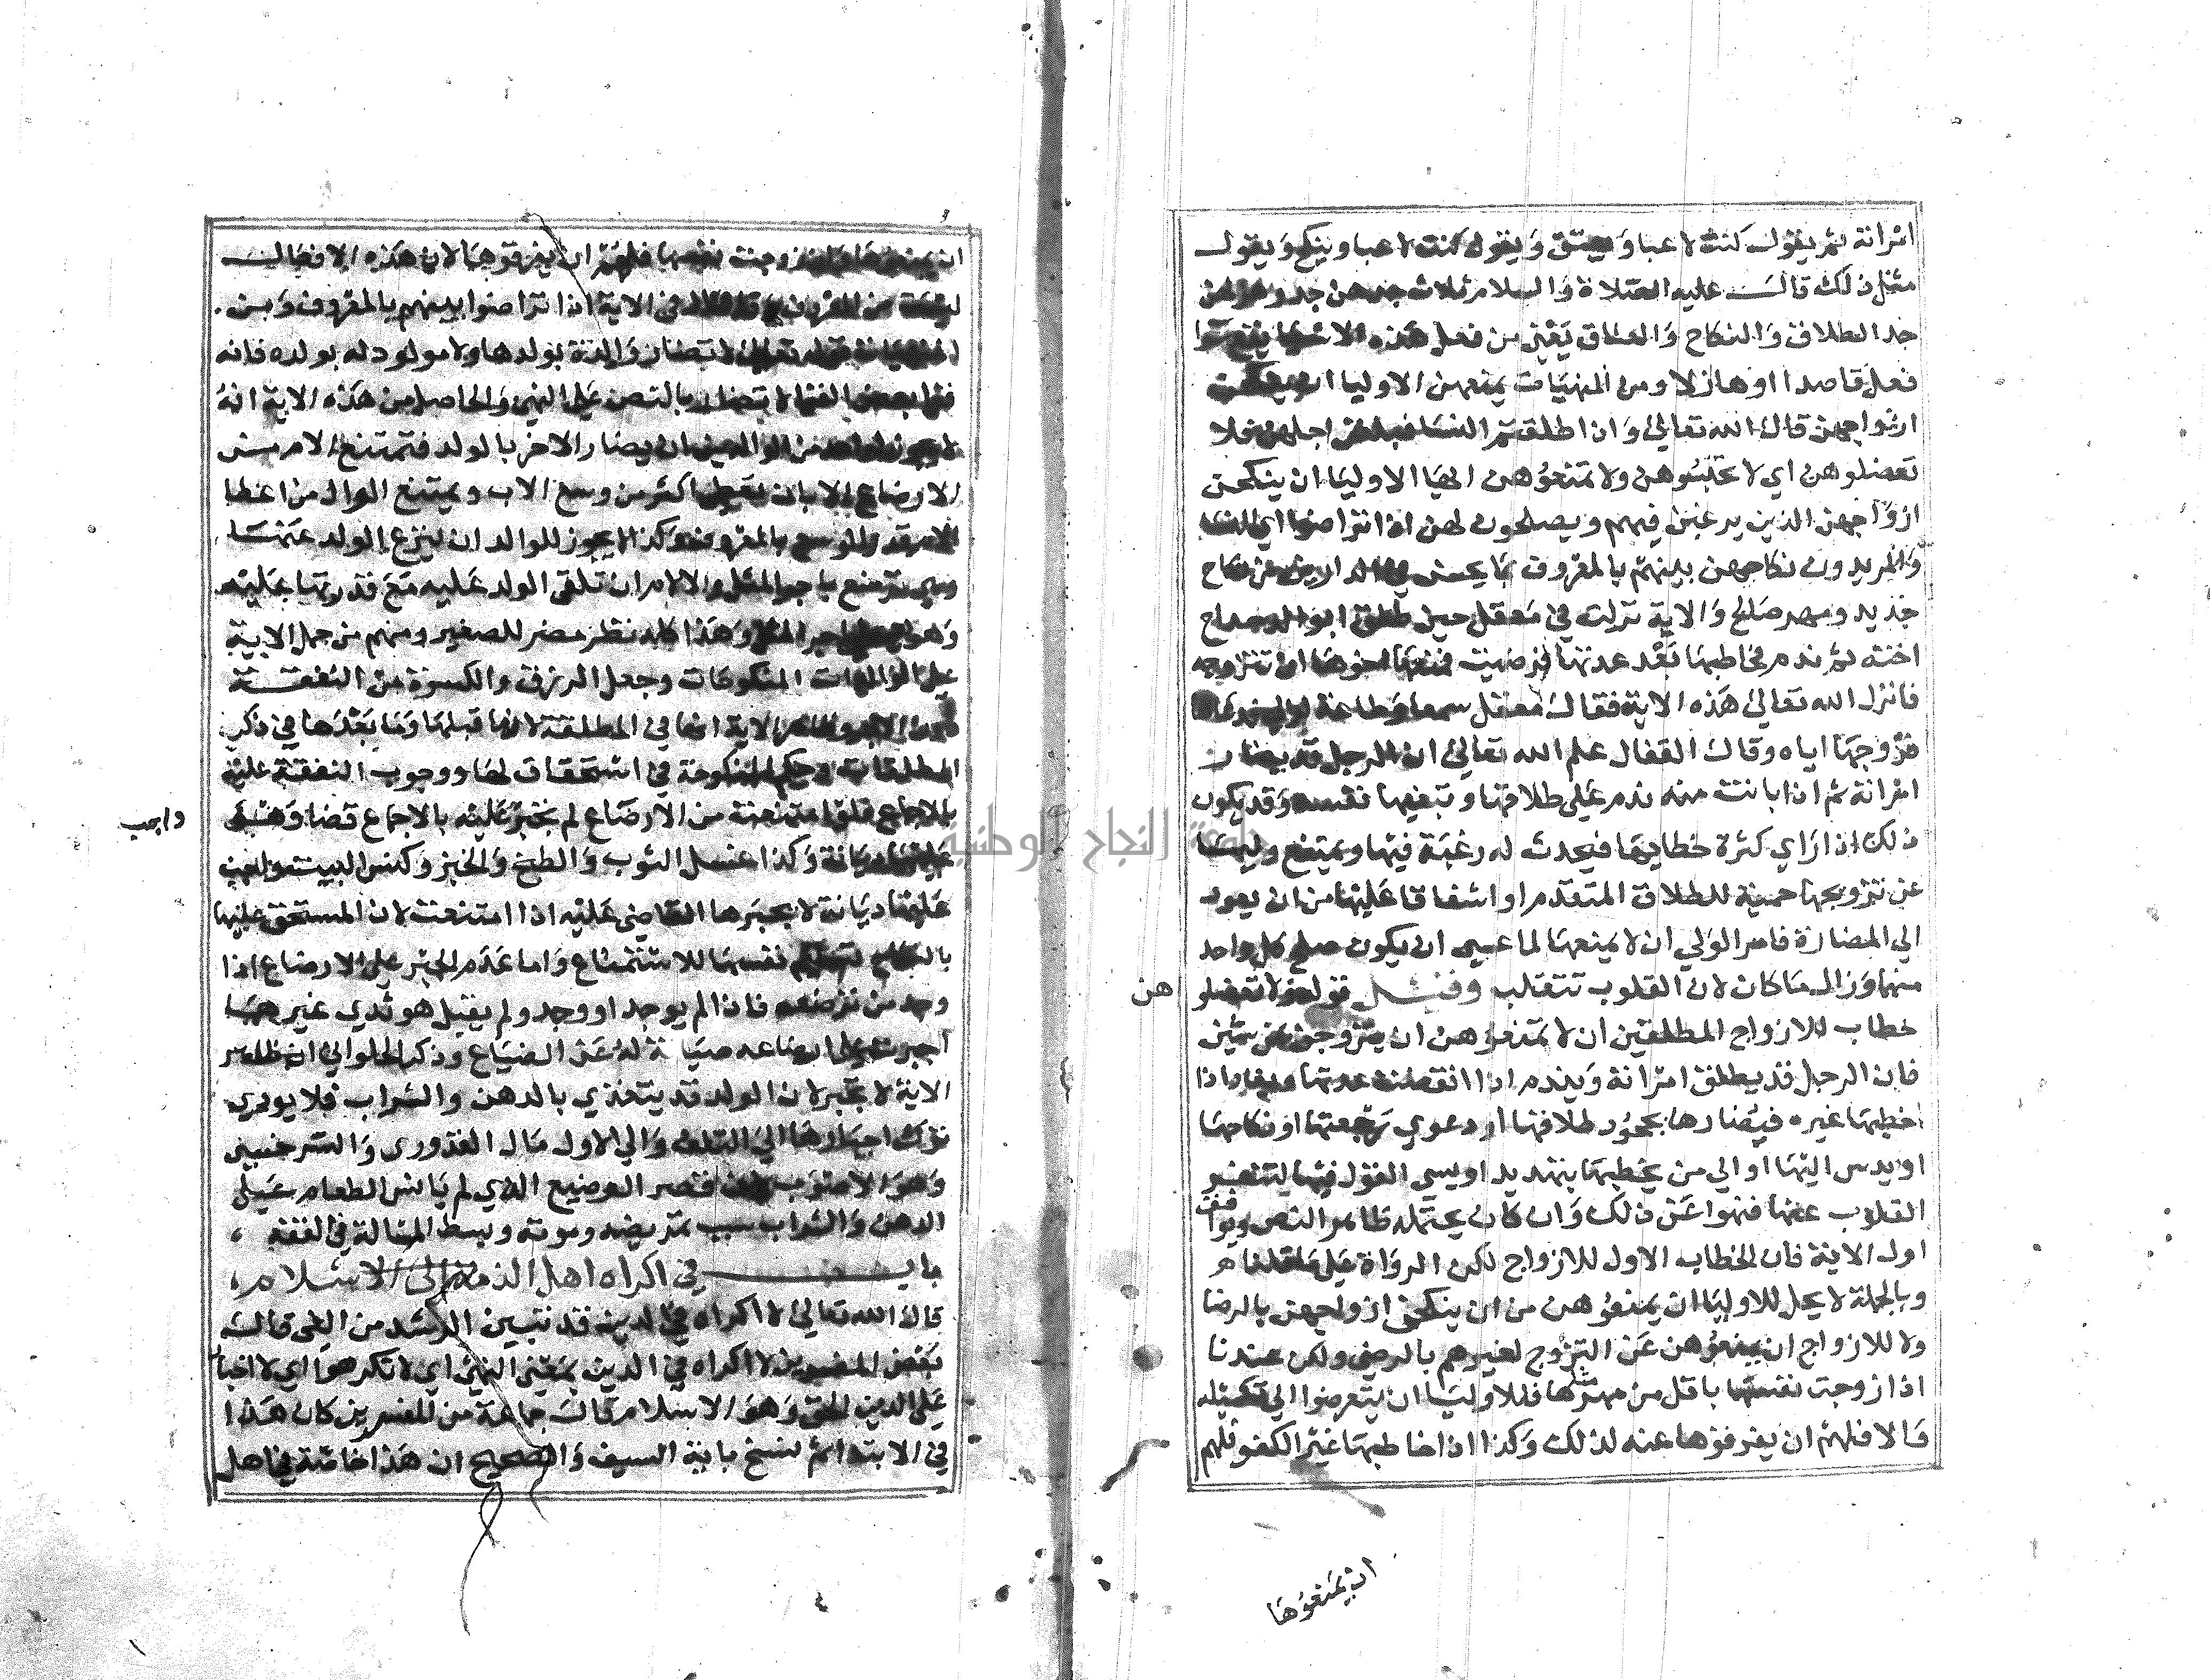 امرانه ثم يقول كنت لاعبا ويعتق ويقول كنت لاعبا وينكح ويقول
مثل ذلك قال عليه الصلاة والسلام ثلاث جدهن جد وهزلهن
جد الطلاق والنكاح والعتاق يعني من فعل هذه الاشيا يقع سوا
فعل قاصدا او هازلا ومن المنهيات يمنعهن الاوليا ان ينكحن
ازواجهن قال الله تعالى واذا طلقتم النسا فبلغن اجلهن فلا
تعضلوهن اي لا تحبسوهن ولا تمنعوهن ايها الاوليا ان ينكحن
ازواجهن الذين يرغبن فيهم ويصلحون لهن اذا تراضوا اي النسا
والمريدون نكاحهن بينهم بالمعروف بما يحسن في الدين من نكاح
جديد ومهر صالح والاية نزلت في معقل حين طلق ابو الدحداح
اخته ثم ندم فخاطبها بعد عدتها فرضيت فمنعها اخوها ان تتزوجه
فانزل الله تعالى هذه الاية فقال معقل سمعا وطاعة
فزوجها اياه وقال القفال علم الله تعالى ان الرجل قد يضار
امرانه ثم اذا بانت منه ندم على طلاقها وتبغيها نفسه وقد يكون
ذلك اذا راي كثرة خطابها فيحدث له رغبة فيها ويمتنع وليها
عن تزويجها حمية للطلاق المتقدم او اشفاقا عليها من ان يعود
الي المضارة فامر الولي ان لا يمنعها لما عسى ان يكون صلح كل واحد
منهما وزال ما كان لان القلوب تتقلب وقيل قوله لا تعضلو
هن
خطاب للازواج المطلقين ان لا تمنعوهن ان يتزوجن بمن شين
فان الرجل قد يطلق امرانه ويندم اذا انقضت عدتها فاذا
خطبها غيره فيضارها بجحود طلاقها او دعوي رجعتها او نكاحها
او يدس اليها او الي من يخطبها بتهديد او يسي القول فيها لتنفر
القلوب عنها فنهوا عن ذلك وان كان يحتمله ظاهر النص ويوافق
اول الاية فان الخطاب الاول للازواج لكن الرواة على ما قلنا
وبالجملة لا يحل للاوليا ان يمنعوهن من ان ينكحن ازواجهن بالرضا
ولا للازواج ان يمنعوهن عن التزوج لغيرهم بالرضى ولكن عندنا
اذا زوجت نفسها باقل من مهر مثلها فللاوليا ان يتعرضوا الي تكميله
والا فلهم ان يفرقوها عنه لذلك وكذا اذا خاطبها غير الكفو فلهم
ان يمنعوها
ان يمنعوها زوجت نفسها فلهم ان يفرقوهما لان هذه الافعال
ليست من المعروف في الاية اذا تراضوا بينهم بالمعروف ومن
قوله تعالى لا تضار والدة بولدها ولا مولود له بولده فانه
بعض الفقها لا تضار بالنصب على النهي والحاصل من هذه الاية انه
لا يجوز لواحد من الوالدين ان يضار الاخر بالولد فتمتنع الام من
الارضاع الا بان تعطى اكثر من وسع الاب ويمتنع الوالد من اعطا
بالمعروف وكذا لا يجوز للوالد ان ينزع الولد عنها
باجر المثل والا للام ان تلقي الولد عليه مع قدرتها عليه
وهو اجر المثل وهذا كله نظر مضر للصغير ومنهم من حمل الاية
على الوالدات المنكوحات وجعل الرزق والكسوة من النفقة
الاية انها في المطلقة لانها قبلها وما بعدها في ذكر
المطلقات حكم المنكوحة في استحقاق لها ووجوب النفقة عليه
بالاجماع فلو امتنعت من الارضاع لم يجبر عليه بالاجماع قضا وهنا
ديانة وكذا غسل الثوب والطبخ والخبز وكنس البيت واجب
واجب
عليها ديانة لا يجبرها القاضي عليه اذا امتنعت لان المستحق عليها
بالنكاح تسليم نفسها للاستمتاع واما عدم الجبر على الارضاع اذا
وجد من ترضعه فاذا لم يوجد او وجد ولم يقبل هو ثدي غيرها
اجبرت على ارضاعه صيانة له عن الضياع وذكر الحلواني ان ظاهر
الاية لا تجبر لان الولد قد يتغذي بالدهن والشراب فلا يودي
ترك اجبارها الي التلف والي الاول مال القدوري والسرخسي
وهو الاصوب فقصر الرضيع الذي لم يانس الطعام على
الدهن والشراب سبب تمريضه وموته وبسط المسالة في الفقه
باب في اكراه اهل الذمة الى الاسلام
قال الله تعالى لا اكراه في الدين قد تبين الرشد من الغي قال
بعض المفسرين لا اكراه في الدين بمعنى النهي اي لا تكرهوا اي لا اجبار
على الدين الحق وهو الاسلام قال جماعة من المفسرين كان هذا
في الابتدا ثم نسخ باية السيف والصحيح ان هذا خاصة في اهل
جامعة النجاح الوطنية